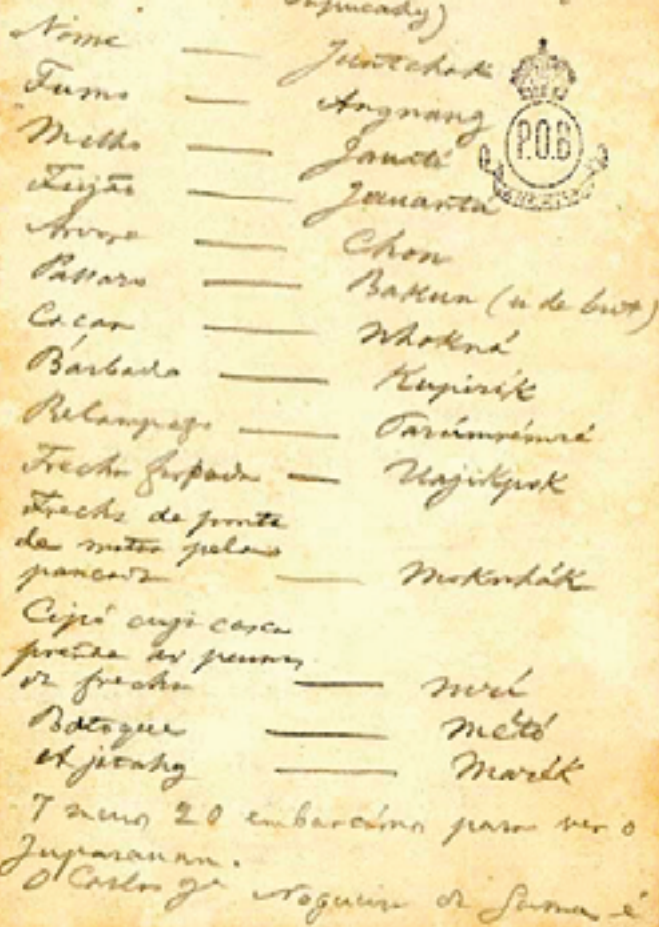 Nome — Juntchak
Fumo — Angnang
Milho — Jauati
Feijão — Jauanta
Arvore — Chon
Passaro — Bakun (u de but)
Cacau — Whokná
Barbado — Kupirik
Relampago — Tarúmrémré
Frecha farpada — Uajikpok
Frecha de ponta
de matar pela
pancada — Moknhák
Cipó cuja casca
prende as pennas
da frecha — mrú
Batoque — Métó
Ajitahy — Marék
7 menos 20 embarcámos para ver o
Juparanan.
O Carlos Je Nogueira da Gama é
P.O.B